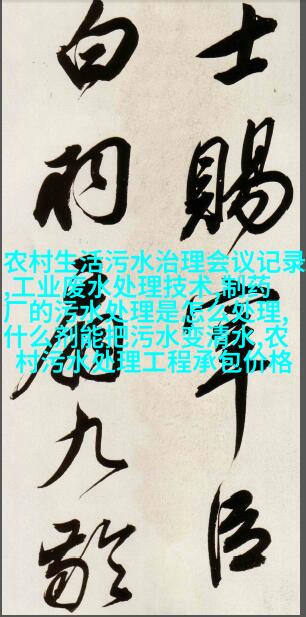 士賜宰臣
白羽扇九齡
农村生活污水治理会议记录
,工业废水处理技术,制药
厂的污水处理是怎么处理,
什么剂能把污水变清水,农
村污水处理工程承包价格